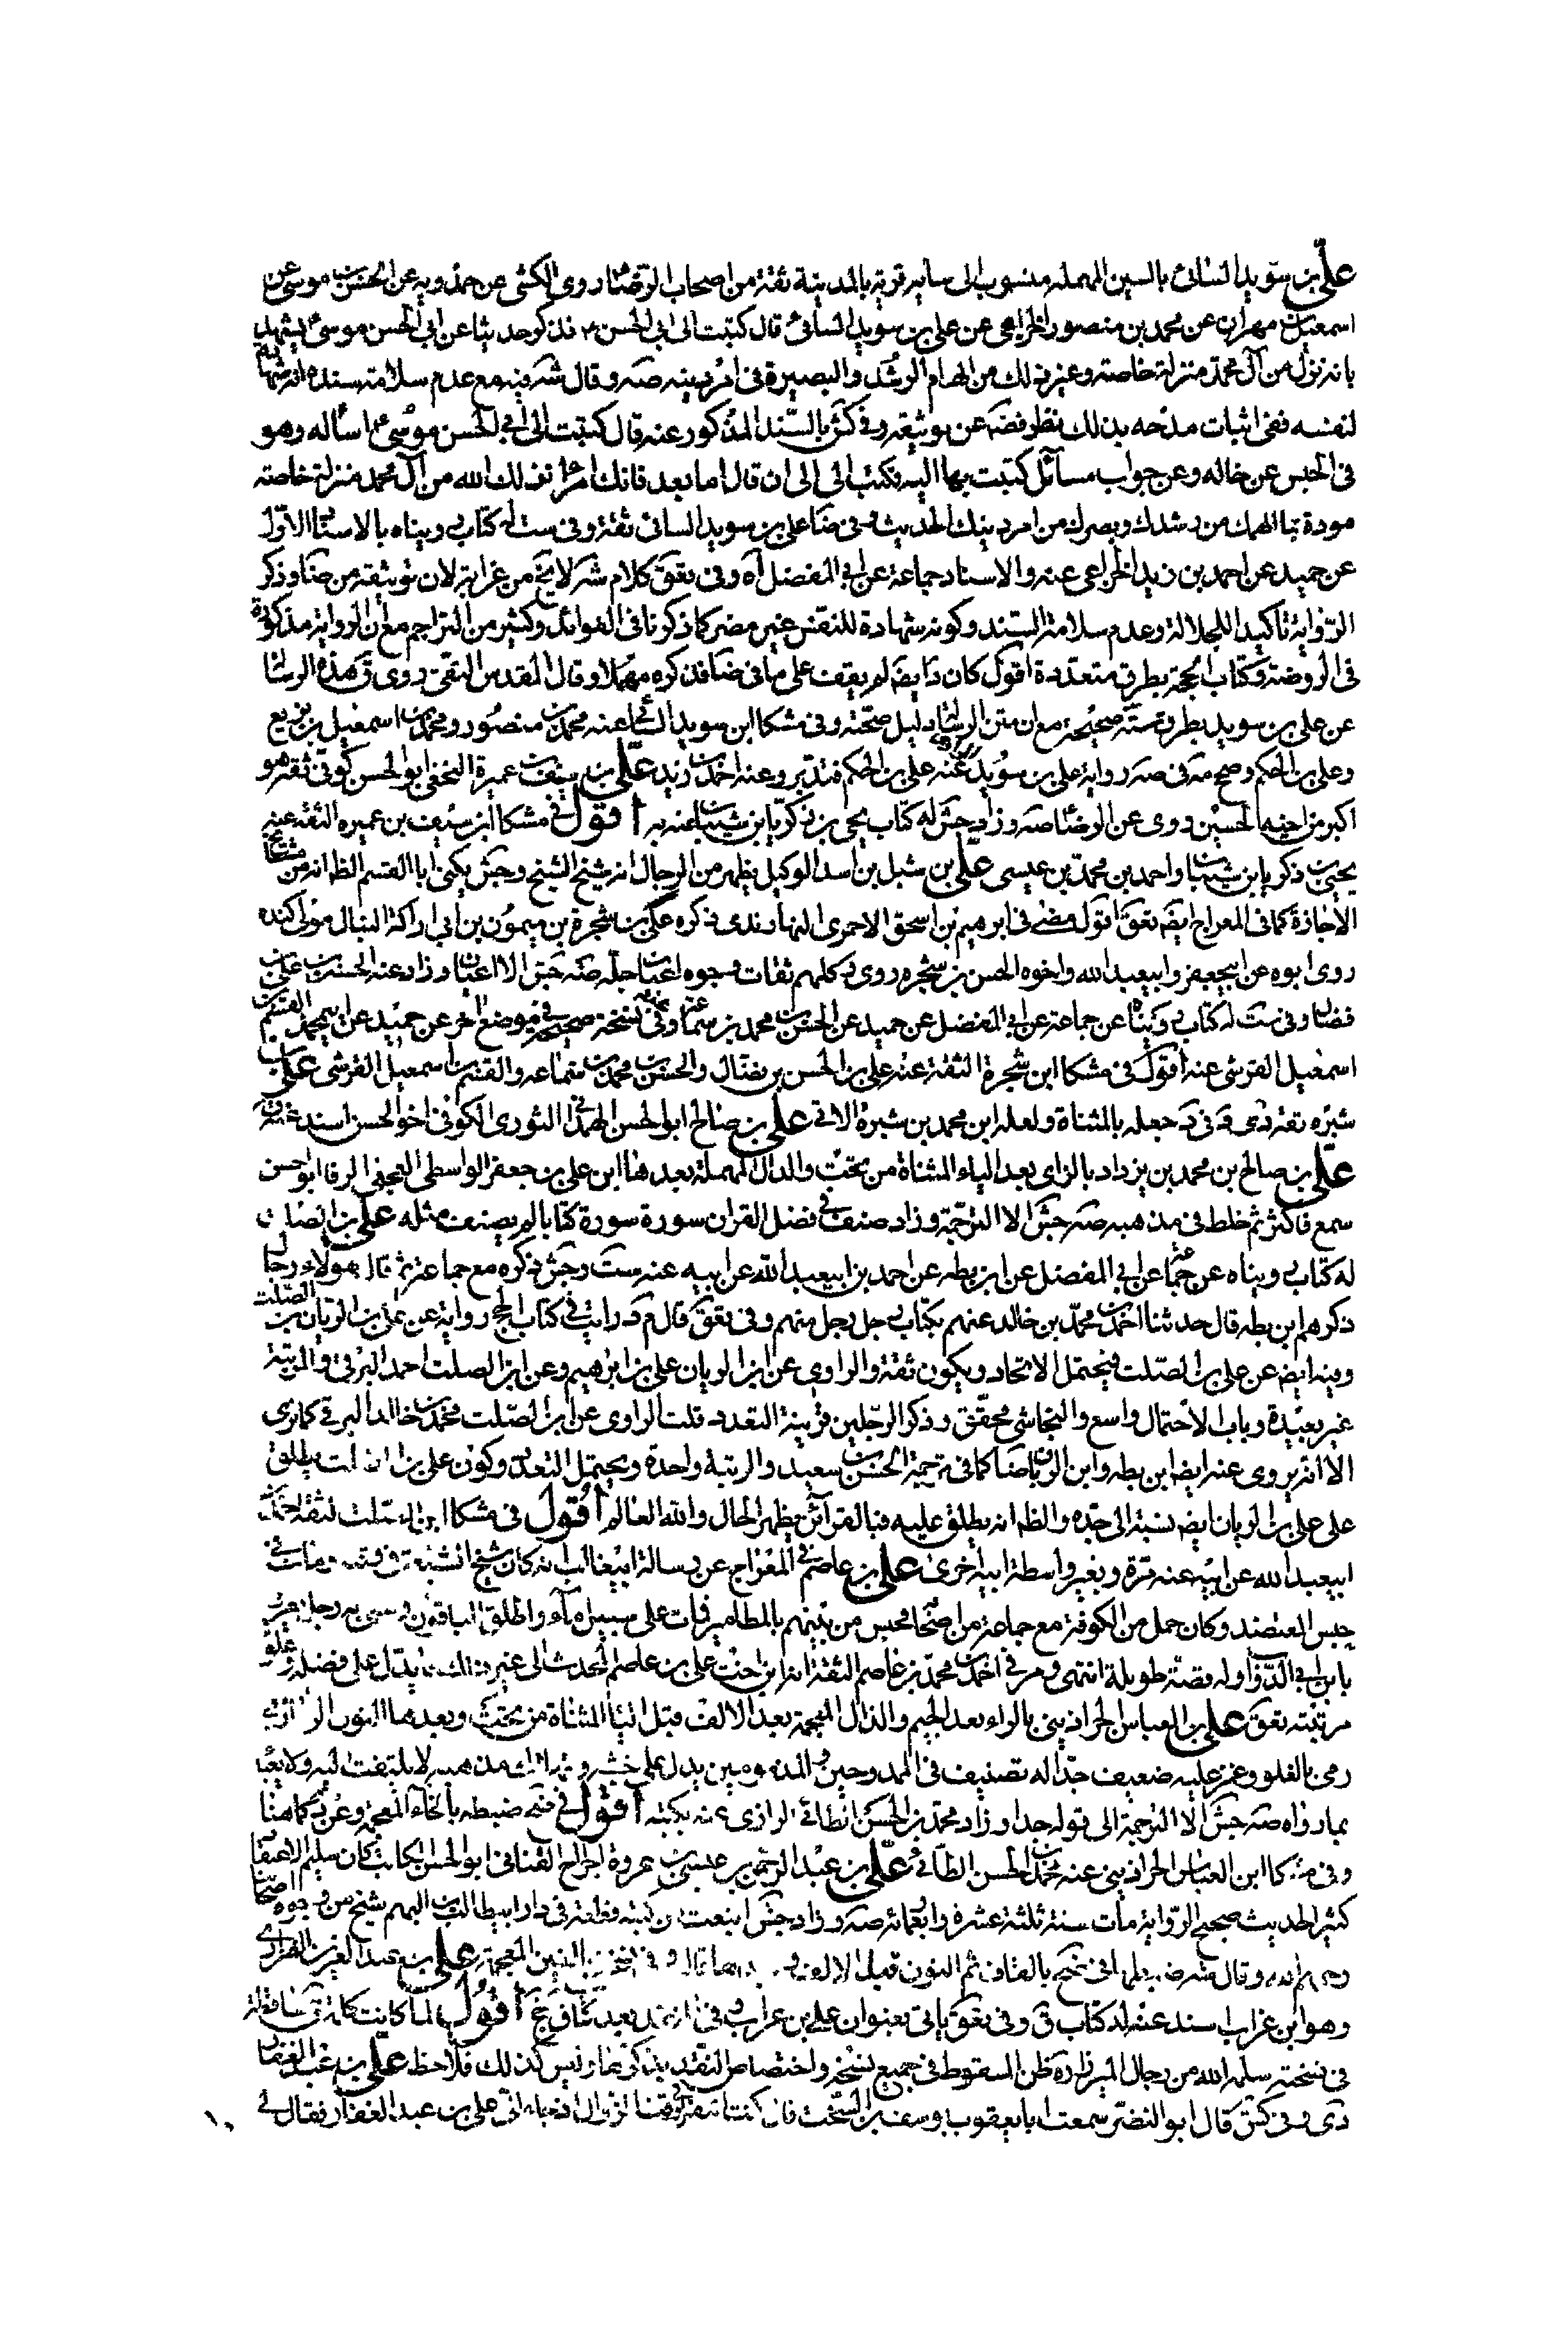 علي بن سويد السائي بالسين المهملة منسوب الى سايه قرية بالمدينة ثقة من اصحاب الرضا روى الكشي عن حمدويه عن الحسن بن موسى عن
اسمعيل بن مهران عن محمد بن منصور الخزاعي عن علي بن سويد السائي قال كتبت الى ابي الحسن م فذكر حديثا عن ابي الحسن موسى ع يشهد
بانه نزل من آل محمد منزلة خاصة وغير ذلك من الهام الرشد والبصيرة في امر دينه صه وقال شه فيه مع عدم سلامة سنده انه شهادة
لنفسه ففي اثبات مدحه بذلك نظر فضلا عن توثيقه وفي كش بالسند المذكور عنه قال كتبت الى ابي الحسن موسى ع اساله وهو
في الحبس عن حاله وعن جواب مسائل كتبت بها اليه فكتب الي الى ان قال اما بعد فانك امرؤ انزلك الله من آل محمد منزلة خاصة
مودة بما الهمك من رشدك وبصرك من امر دينك الحديث وفي ضا علي بن سويد السائي ثقة وفي ست له كتاب رويناه بالاسناد الاول
عن حميد عن احمد بن زيد الخزاعي عنه والاسناد جماعة عن ابي المفضل اه وفي تعق كلام شه لا يخ من غرابة لان توثيقه من ضا وذكر
الرواية تاكيد للجلالة وعدم سلامة السند وكونه شهادة للنفس غير مضر كما ذكرنا في الفوائد وكثير من التراجم مع ان الرواية مذكورة
في الروضة وكتاب الحجة بطرق متعددة اقول كان د ايضا لم يقف على ما في ضا فذكره مهملا وقال المقدس التقي روى ق هذه الرسالة
عن علي بن سويد بطرق ستة صحيحة مع ان متن الرسالة دليل صحته وفي مشكا ابن سويد السائي عنه محمد بن منصور ومحمد بن اسمعيل بن بزيع
وعلي بن الحكم وصح مه في صه رواية علي بن سويد عنه علي بن الحكم فتدبر وعنه احمد بن زيد علي بن سيف بن عميرة النخعي ابو الحسن كوفي ثقة هو
اكبر من اخيه الحسين روى عن الرضا صه وزاد جش له كتاب يحيى بن زكريا بن شيبان عنه به اقول في مشكا ابن سيف بن عميره الثقة عنه
يحيى بن زكريا بن شيبان واحمد بن محمد بن عيسى علي بن شبل بن اسد الوكيل يظهر من الرجال انه شيخ الشيخ وجش يكنى ابا القسم الظ انه من مشايخ
الاجازة كما في المعراج ايضا تعق اقول مضى في ابرهيم بن اسحق الاحمري النهاوندي ذكره علي بن شجرة بن ميمون بن ابي اراكة النبال مولى كنده
روى ابوه عن ابيجعفر وابيعبد الله واخوه الحسن بن شجره روى كلهم ثقات وجوه اعيان جلة صه جش الا اعيان وزاد عنه الحسن بن علي بن
فضال وفي ست له كتاب رويناه عن جماعة عن ابي المفضل عن حميد عن الحسن بن محمد بن سماعة عنه وفي نسخة صحيحة في موضع اخر عن حميد عن ابي محمد القسم بن
اسمعيل القرشي عنه اقول في مشكا ابن شجرة الثقة عنه علي بن الحسن بن فضال والحسن بن محمد بن سماعه والقسم بن اسمعيل القرشي علي بن
شيره ثقة دى وفي د جعله بالمثناة ولعله ابن محمد بن شيره الاتي علي بن صالح ابو الحسن الهمداني الثوري الكوفي اخو الحسن اسند عنه ق
علي بن صالح بن محمد بن يزداد بالزاى بعد الياء المثناة من تحت والدال المهملة بعدها ابن علي بن جعفر الواسطي العجلي الرفا ابو الحسن
سمع فاكثر ثم خلط في مذهبه صه جش الا الترجمة وزاد صنف في فضل القران سورة سورة كتابا لم يصنف مثله علي بن الصلت
له كتاب رويناه عن جماعة عن ابي المفضل عن ابن بطه عن احمد بن ابيعبد الله عن ابيه عنه ست وجش ذكره مع جماعة ثم قال هولاء رجال
ذكرهم ابن بطه قال حدثنا احمد بن محمد بن خالد عنهم بكتاب رجل رجل منهم وفي تعق قال م د رايت في كتاب الحج رواية عن علي بن الريان بن الصلت
وفيه ايضا عن علي بن الصلت فيحتمل الاتحاد ويكون ثقة والراوي عن ابن الريان علي بن ابرهيم وعن ابن الصلت احمد البرقي والمرتبة
غير بعيدة وباب الاحتمال واسع والنجاشي محقق وذكر الرجلين قرينة التعدد قلت الراوي عن ابن الصلت محمد بن خالد البرقي كما ترى
الا انه يروي عنه ايضا ابن بطه وابن الريان ايضا كما في ترجمة الحسن بن سعيد والرتبة واحدة ويحتمل التعدد وكون علي بن الصلت يطلق
على علي بن الريان ايضا نسبة الى جده والظ انه يطلق عليه فبالقرآئن يظهر الحال والله العالم اقول في مشكا ابن الصلت لثقة احمد بن
ابيعبد الله عن ابيه عنه مرة وبغير واسطة ابيه اخرى علي بن عاصم في المعراج عن رسالة ابي غالب انه كان شيخ الشيعة في وقته ومات في
حبس المعتضد وكان حمل من الكوفة مع جماعة من اصحابنا فحبس من بينهم بالمطامير فمات على سبيل ماء واطلق الباقون وسعى به رجل يعرف
بابن ابي الدواب وله قصة طويلة انتهى ومر في احمد بن محمد بن عاصم الثقة انه ابن اخت علي بن عاصم المحدث الى غير ذلك مما يدل على فضله وعلو
مرتبته تعق علي بن العباس الجراذيني بالراء بعد الجيم والذال المعجمة بعد الالف قبل الياء المثناة من تحت وبعدها النون الرازي
رمي بالغلو وغمز عليه ضعيف جدا له تصنيف في الممدوحين والمذمومين يدل على خبثه وتهالك مذهبه لا يلتفت اليه ولا يعبا
بما رواه صه جش الا الترجمة الى قوله جدا وزاد محمد بن الحسن الطائي الرازي عنه بكتبه اقول في ضح ضبطه بالخاء المعجمة وعن د كما هنا
وفي مشكا ابن العباس الجراذيني عنه محمد بن الحسن الطائي علي بن عبد الرحمن بن عيسى بن عروة الجراح القناني ابو الحسن الكاتب كان سليم الاعتقاد
كثير الحديث صحيح الرواية مات سنة ثلثة عشرة واربعمائه صه وزاد جش ابتعت من كتبه قطعة في دار ابي طالب البهم شيخ من وجوه اصحابنا
رحمهم الله وقال شه بالقاف ثم النون قبل الالف و بعدها قال وفي بالغين المعجمة علي بن عبد العزيز الفزاري
وهو ابن غراب اسند عنه له كتاب ق وفي تعق ياتي بعنوان علي بن غراب وفي اقول لما كانت كلمة ق ساقطة
في نسخته سلمه الله من رجال الميرزا ره ظن السقوط في جميع نسخه واختصاص النقد بذكرها وليس كذلك فلاحظ علي بن عبد الغفار
دى وفي كش قال ابو النضر سمعت ابا يعقوب يوسف بن السخت قال كنت علي بن عبد الغفار فقال لي